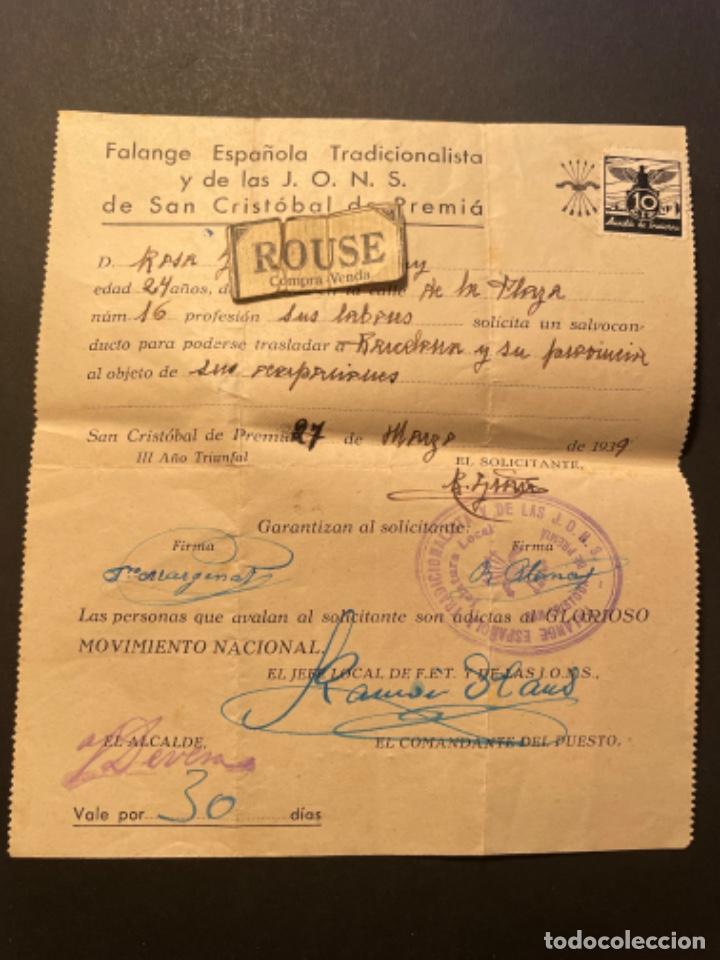 Falange Española Tradicionalista
y de las J. O. N. S.
de San Cristóbal de Premiá
10
CTS
Auxilio de Invierno
ROUSE
Compra-Venda
D. Rosa
edad 24 años, de la calle de la Plaza
núm 16 profesión sus labores solicita un salvocon-
ducto para poderse trasladar a Barcelona y su provincia
al objeto de sus ocupaciones
San Cristóbal de Premiá 27 de Marzo de 1939
III Año Triunfal
EL SOLICITANTE,
Garantizan al solicitante:
Firma
Firma
FALANGE ESPAÑOLA TRADICIONALISTA Y DE LAS J.O.N.S.
Jefatura Local
Las personas que avalan al solicitante son adictas al GLORIOSO
MOVIMIENTO NACIONAL.
EL JEFE LOCAL DE F.E.T. Y DE LAS J.O.N.S.,
Ramón
EL ALCALDE,
EL COMANDANTE DEL PUESTO,
Vale por 30 días
todocoleccion